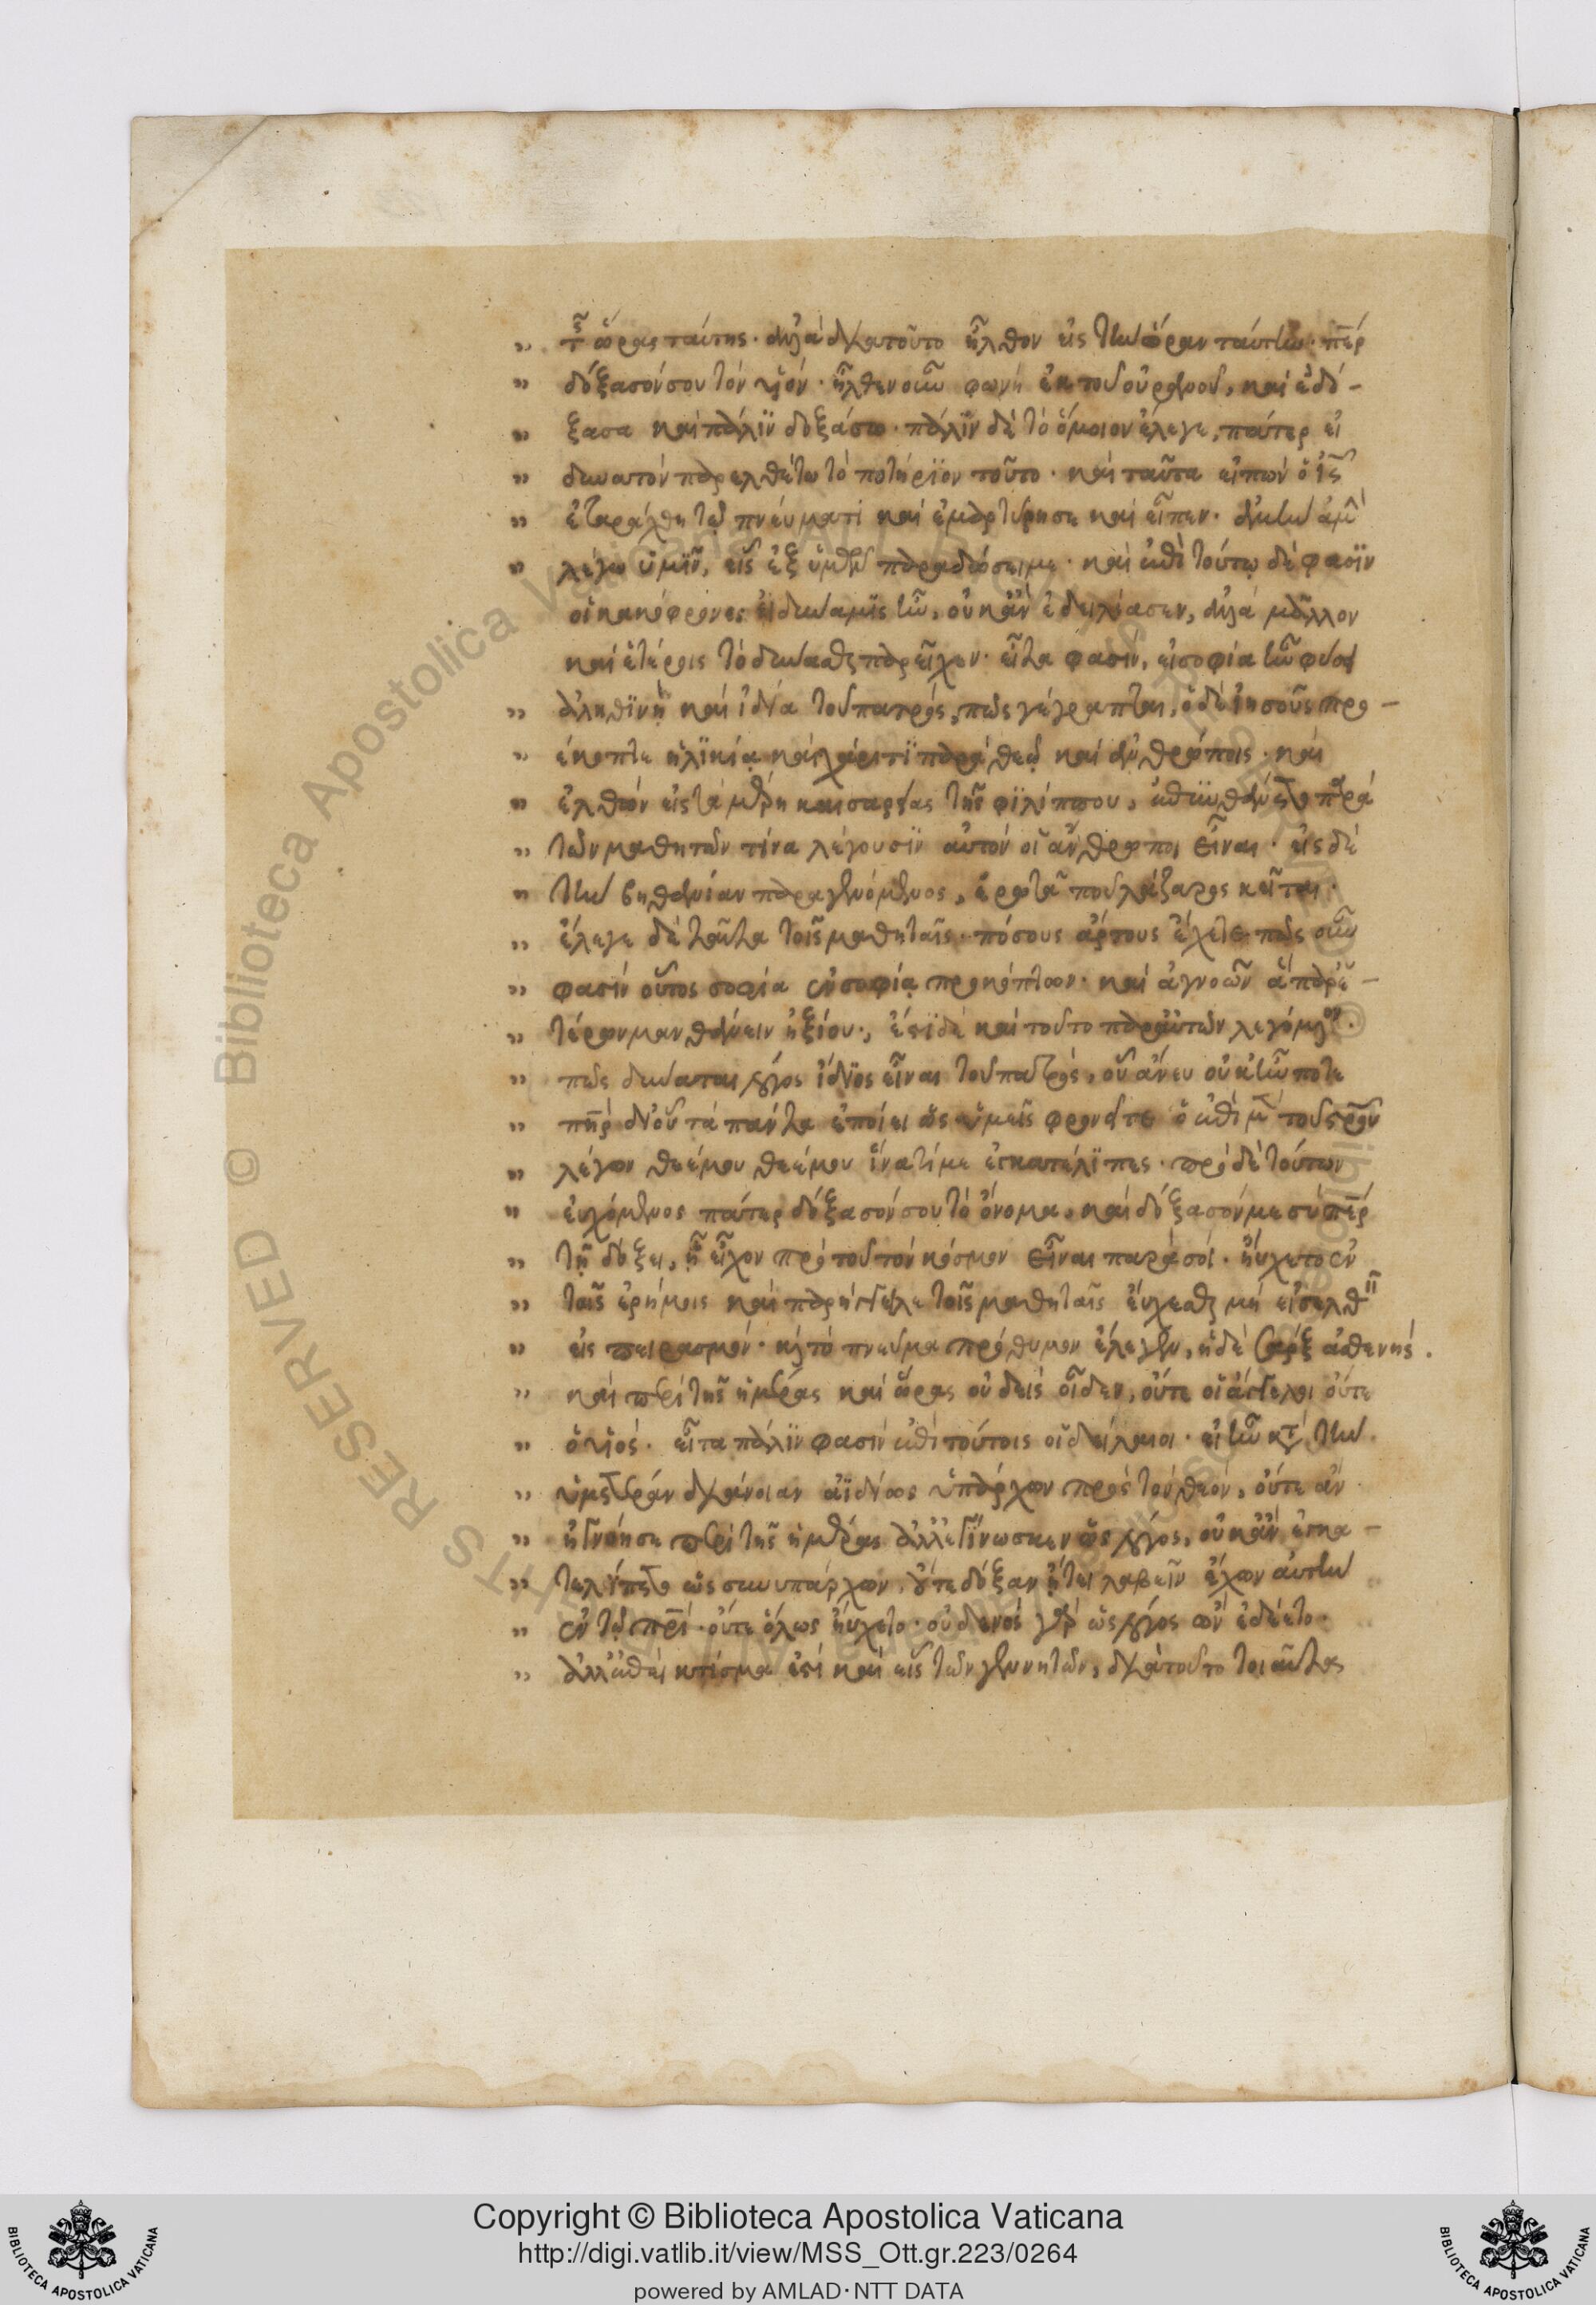 τῆς ὥρας ταύτης· ἀλλὰ διὰ τοῦτο ἦλθον εἰς τὴν ὥραν ταύτην· περ
δόξασόν σου τὸν υἱόν· ἦλθεν οὖν φωνὴ ἐκ τοῦ οὐρανοῦ, καὶ ἐδό-
ξασα καὶ πάλιν δοξάσω· πάλιν δὲ τὸ ὅμοιον ἔλεγε, πάτερ εἰ
δυνατὸν παρελθέτω τὸ ποτήριον τοῦτο· καὶ ταῦτα εἰπὼν ὁ ις
ἐταράχθη τῷ πνεύματι καὶ ἐμαρτύρησε καὶ εἶπεν· ἀμὴν ἀμὴν
λέγω ὑμῖν, εἷς ἐξ ὑμῶν παραδώσει με· καὶ ἐπὶ τούτῳ δέ φασιν
οἱ κακόφρονες εἰ δύναμις ἦν, οὐκ ἂν ἐδειλίασεν, ἀλλὰ μᾶλλον
καὶ ἑτέροις τὸ δύνασθαι παρεῖχεν· εἶτα φασὶν, εἰ σοφία ἦν φύσει
ἀληθινὴ καὶ ἰδία τοῦ πατρός, πῶς γέγραπται, ὁ δὲ ἰησοῦς προ-
έκοπτε ἡλικίᾳ καὶ χάριτι παρὰ θεῷ καὶ ἀνθρώποις· καὶ
ἐλθὼν εἰς τὰ μέρη καισαρείας τῆς φιλίππου, ἐπυνθάνετο παρὰ
τῶν μαθητῶν τίνα λέγουσιν αὐτὸν οἱ ἄνθρωποι εἶναι· εἰς δὲ
τὴν βηθανίαν παραγενόμενος, ἐρωτᾶ ποῦ λάζαρος κεῖται·
ἔλεγε δὲ ταῦτα τοῖς μαθηταῖς· πόσους ἄρτους ἔχετε πῶς οὖν
φασὶν οὗτος σοφία ἐν σοφίᾳ προκόπτων· καὶ ἀγνοῶν ἃ παρ' ἑ-
τέρων μανθάνειν ἠξίου·, ἔστι δὲ καὶ τοῦτο παρ' αὐτῶν λεγόμενον.
πῶς δύναται λόγος ἴδιος εἶναι τοῦ πατρός, οὗ ἄνευ οὐκ ἦν ποτε
πηρ δι' οὗ τὰ πάντα ἐποίει ὡς ὑμεῖς φρονεῖτε ὁ ἐπὶ μὲν τοῦ σρου
λέγων θεέ μου θεέ μου ἵνα τί με ἐγκατέλιπες· πρὸ δὲ τούτων
εὐχόμενος πάτερ δόξασόν σου τὸ ὄνομα, καὶ δόξασόν με σὺ περ
τῇ δόξει, ᾗ εἶχον πρὸ τοῦ τὸν κόσμον εἶναι παρὰ σοί· ηὔχετο ἐν
ταῖς ἐρήμοις καὶ παρήγγελλε τοῖς μαθηταῖς εὔχεσθαι μὴ εἰσελθεῖν
εἰς πειρασμόν· καὶ τὸ πνεῦμα πρόθυμον ἔλεγεν, ἡ δὲ σὰρξ ἀσθενής.
καὶ περὶ τῆς ἡμέρας καὶ ὥρας οὐδεὶς οἶδεν, οὔτε οἱ ἄγγελοι οὔτε
ὁ υἱός. εἶτα πάλιν φασὶν ἐπὶ τούτοις οἱ δείλαιοι· εἰ ἦν κατὰ τὴν
ὑμετέραν διάνοιαν ἀϊδίως ὑπάρχων πρὸς τὸν θεόν, οὔτε ἂν
ἠγνόησε περὶ τῆς ἡμέρας ἀλλ' ἐγίνωσκεν ὡς λόγος, οὐκ ἂν ἐγκα-
τελείπετο ὡς συνυπάρχων, οὔτε δόξαν ᾔτει λαβεῖν ἔχων αὐτὴν
ἐν τῷ πρί· οὔτε ὅλως ηὔχετο· οὐδενὸς γὰρ ὡς λόγος ὢν ἐδέετο·
ἀλλ' ἐπεὶ κτίσμα ἐστὶ καὶ εἷς τῶν γενητῶν, διὰ τοῦτο τοιαῦτα
Biblioteca Apostolica Vaticana
© Biblioteca Apostolica Vaticana ALL RIGHTS RESERVED
Copyright © Biblioteca Apostolica Vaticana
http://digi.vatlib.it/view/MSS_Ott.gr.223/0264
powered by AMLAD·NTT DATA
BIBLIOTECA APOSTOLICA VATICANA
BIBLIOTECA APOSTOLICA VATICANA